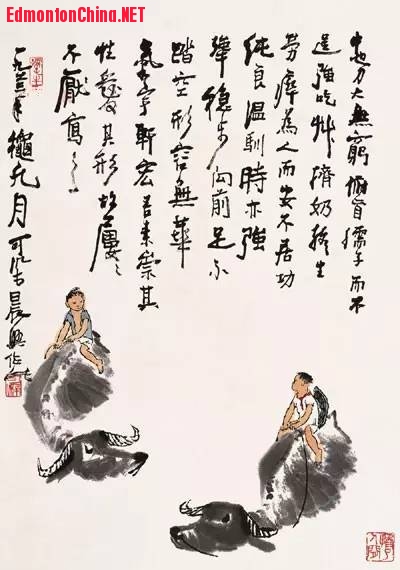 EdmontonChina.NET
牛也力大無窮俯首孺子而不
逞強吃艸擠奶終生
勞瘁為人而安不居功
純良温馴時亦強
犟穩步向前足不
踏空形容無華
氣宇軒宏吾素崇其
性愛其形故屢〻
不厭寫之
一九六 年龝九月可染晨興作